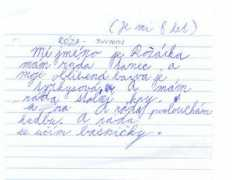 (Je mi 8 let)
RŮŽA -
Mé jméno je Růžárka
mám ráda tanec a
moje oblíbená barva je
tyrkysová. A mám
ráda stolní hry.
a ráda poslouchám
hudbu. A ráda
se učím básničky.